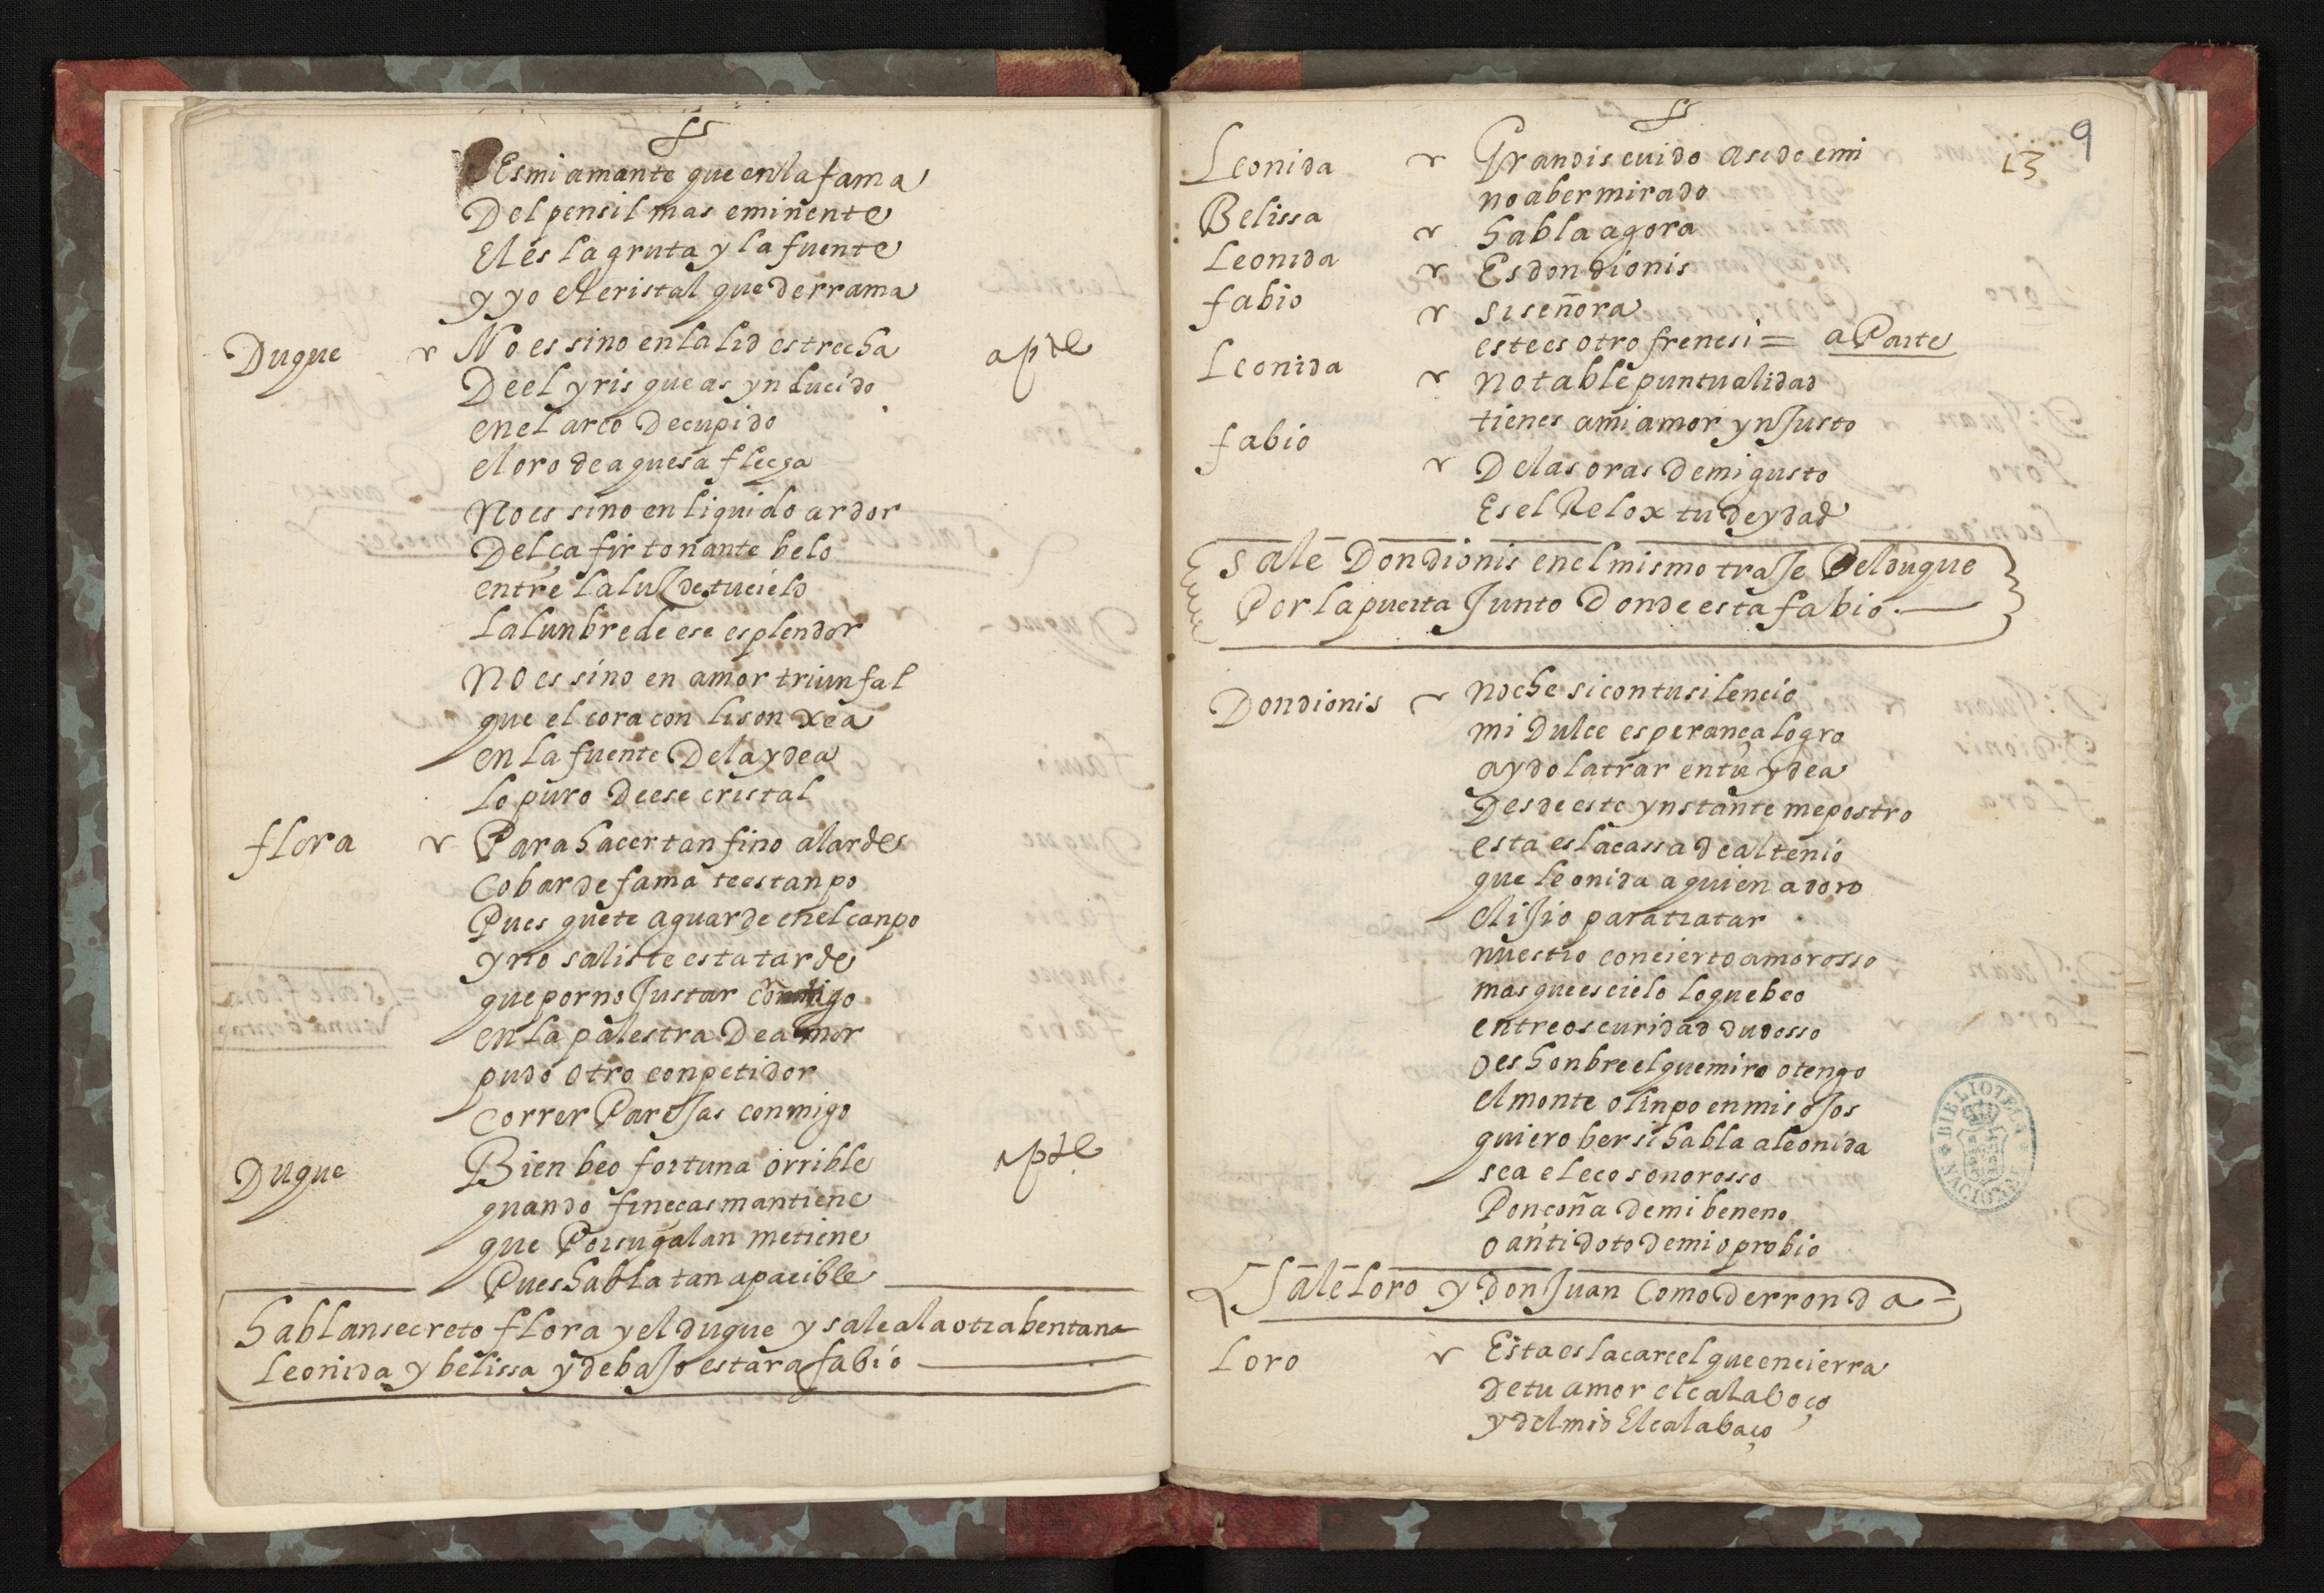 Es mi amante que en la fama
Del pensil mas eminente
El es la gruta y la fuente
y yo el cristal que derrama
Duque No es sino en la lid estrecha apte
De el yris que as yn lucido
en el arco de cupido
el oro de aquesa flecha
No es sino en liquido ardor
Del çafir tonante belo
entre la luz de tu cielo
la lunbre de ese esplendor
No es sino en amor triunfal
que el coraçon lisonxea
en la fuente de la ydea
lo puro de ese cristal
flora Para hacer tan fino alarde
cobarde fama te estanpo
Pues que te aguarde en el canpo
y no saliste esta tarde
que por no Justar contigo
en la palestra de amor
pudo otro conpetidor
correr Parejas conmigo
Duque Bien beo fortuna orrible apte
quando fineças mantiene
que Por su galan me tiene
Pues habla tan apacible
hablan secreto flora y el duque y sale a la otra bentana
leonida y belissa y debaJo estara fabio
9
13
Leonida Gran discuido a sido en mi
no aber mirado
Belissa habla agora
Leonida Es don dionis
fabio si señora
este es otro frenesi = a Parte
Leonida notable puntualidad
tienes a mi amor ynJusto
fabio De las oras de mi gusto
Es el Relox tu deydad
Sale Don dionis en el mismo traJe Del duque
Por la puerta Junto Donde esta fabio
Don dionis noche si con tu silencio
mi Dulce esperança logro
a ydolatrar en tu ydea
Desde este ynstante me postro
esta es la cassa de altenio
que leonida a quien adoro
eliJio para tratar
nuestro concierto amorosso
mas que es cielo lo que beo
entre oscuridad dudosso
o es honbre el que miro o tengo
el monte olinpo en mis oJos
quiero ber si habla a leonida
sea el eco sonorosso
Ponçoña de mi beneno
o antidoto de mi oprobio
Sale Loro y don Juan Como de rronda
Loro Esta es la carcel que encierra
de tu amor el calaboço
y del mio El calabaço
BIBLIOTECA NACIONAL